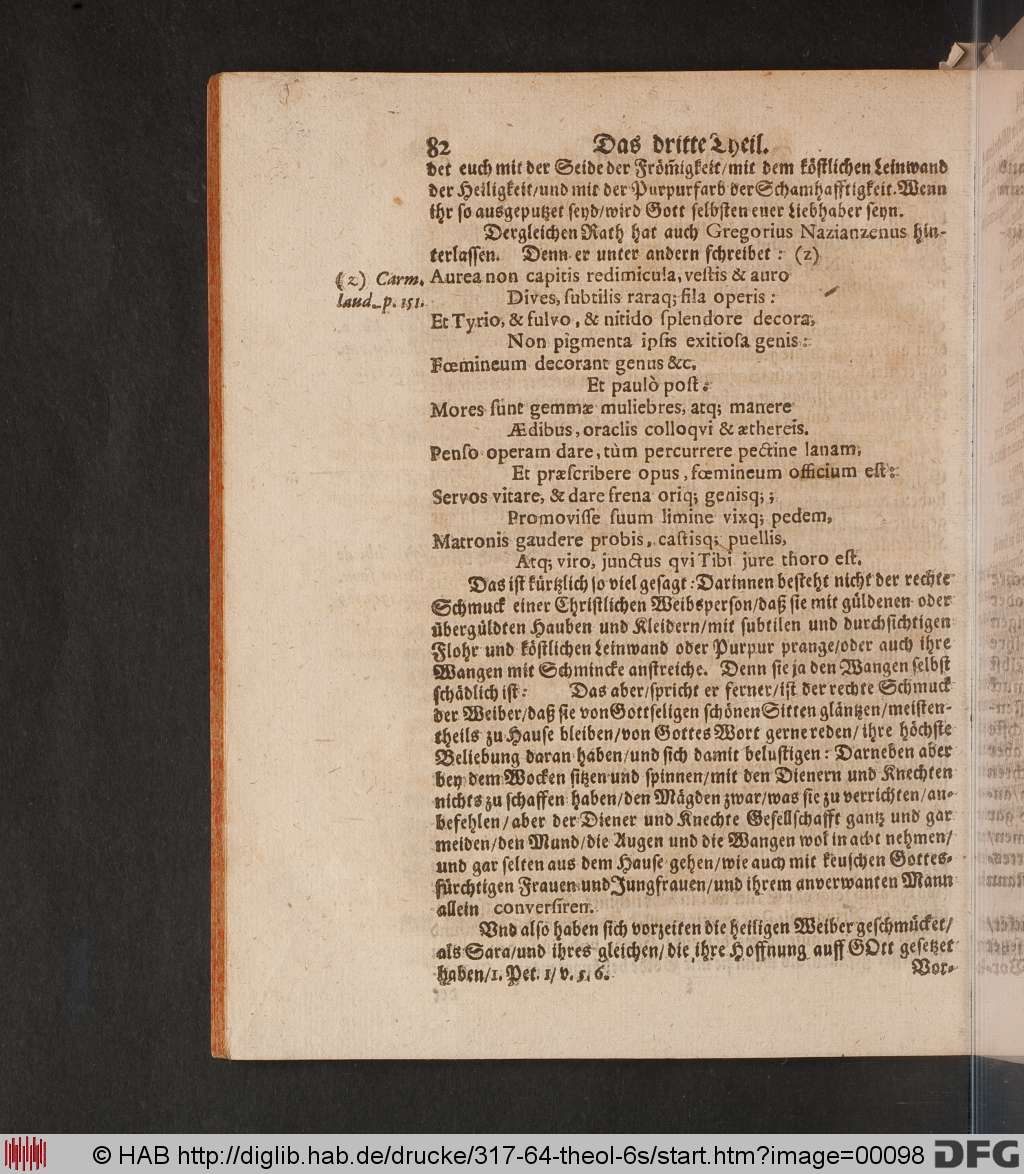 82 Das dritte Theil.
det euch mit der Seide der From̃igkeit/mit dem köstlichen Leinwand
der Heiligkeit/und mit der Purpurfarb der Schamhafftigkeit. Wenn
ihr so ausgeputzet seyd/wird Gott selbsten euer Liebhaber seyn.
Dergleichen Rath hat auch Gregorius Nazianzenus hin-
terlassen. Denn er unter andern schreibet: (z)
(z) Carm.
laud. p. 151.
Aurea non capitis redimicula, vestis & auro
Dives, subtilis raraq; fila operis:
Et Tyrio, & fulvo, & nitido splendore decora,
Non pigmenta ipsis exitiosa genis:
Fœmineum decorant genus &c.
Et paulò post:
Mores sunt gemmæ muliebres, atq; manere
Ædibus, oraclis colloqvi & æthereis.
Penso operam dare, tùm percurrere pectine lanam,
Et præscribere opus, fœmineum officium est:
Servos vitare, & dare frena oriq; genisq; ;
Promovisse suum limine vixq; pedem,
Matronis gaudere probis, castisq; puellis,
Atq; viro, junctus qvi Tibi jure thoro est.
Das ist kürtzlich so viel gesagt: Darinnen besteht nicht der rechte
Schmuck einer Christlichen Weibsperson/daß sie mit güldenen oder
übergüldten Hauben und Kleidern/mit subtilen und durchsichtigen
Flohr und köstlichen Leinwand oder Purpur prange/oder auch ihre
Wangen mit Schmincke anstreiche. Denn sie ja den Wangen selbst
schädlich ist: Das aber/spricht er ferner/ist der rechte Schmuck
der Weiber/daß sie von Gottseligen schönen Sitten gläntzen/meisten-
theils zu Hause bleiben/von Gottes Wort gerne reden/ihre höchste
Beliebung daran haben/und sich damit belustigen: Darneben aber
bey dem Wocken sitzen und spinnen/mit den Dienern und Knechten
nichts zu schaffen haben/den Mägden zwar/was sie zu verrichten/an-
befehlen/aber der Diener und Knechte Gesellschafft gantz und gar
meiden/den Mund/die Augen und die Wangen wol in acht nehmen/
und gar selten aus dem Hause gehen/wie auch mit keuschen Gottes-
fürchtigen Frauen und Jungfrauen/und ihrem anverwanten Mann
allein conversiren.
Vnd also haben sich vorzeiten die heiligen Weiber geschmücket/
als Sara/und ihres gleichen/die ihre Hoffnung auff GOtt gesetzet
haben/1. Pet. 1/v. 5. 6. Vor-
© HAB http://diglib.hab.de/drucke/317-64-theol-6s/start.htm?image=00098 DFG